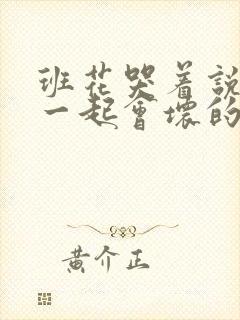 班花哭着說
一起會壞的
黄介正